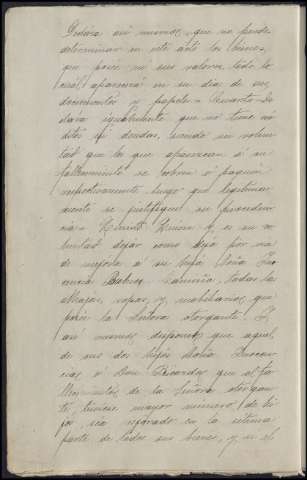 Declara asi mismo, que no puede
determinar en este acto los bienes,
que posee ni sus valores, todo lo
cual aparecerá en su dia de sus
documentos y papeles = Cuarto = De
clara igualmente que no tiene cré
ditos ni deudas, siendo su volun
tad que lo que aparezcan á su
fallecimiento se cobren ó paguen
respectivamente luego que legitima
mente se justifique su proceden
cia = Quinto = y es su vo
luntad dejar como deja por via
de mejora á su hija Doña
Babra todas las
alhajas, ropas, y mobiliarios que
posee la Señora otorgante. Y
asi mismo dispone que aquel
de sus dos hijos Doña
cia ó Don Ricardo, que al fa
llecimiento de la Señora otorgan
te, tuviese mayor número de hi
jos, sea mejorado en la
parte de todos sus bienes, y si el